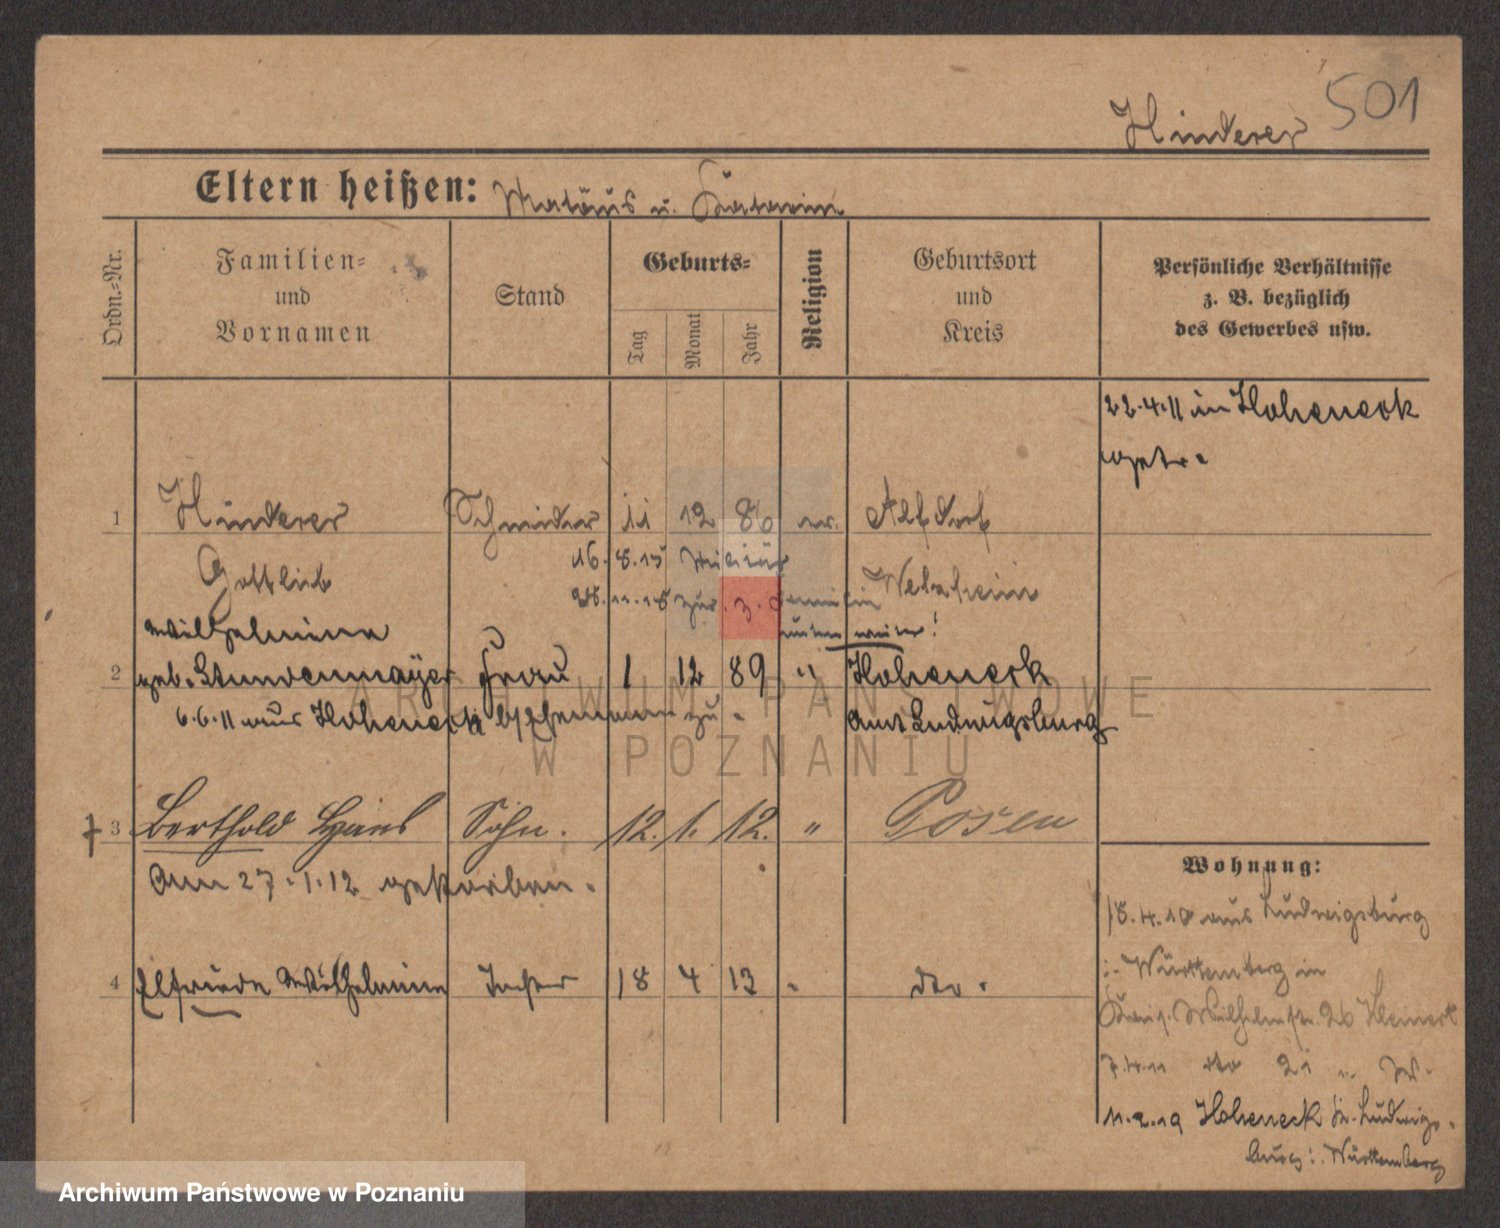 501
Hinderer
Eltern heißen: Matäus u. Katarine
Ordn.-Nr.
Familien-
und
Vornamen
Stand
Geburts-
Tag
Monat
Jahr
Religion
Geburtsort
und
Kreis
Persönliche Verhältnisse
z. B. bezüglich
des Gewerbes usw.
22.4.11 in Hoheneck
getr.
1 Hinderer Schneider 11 12 86 ev. Alfdorf
16. 8.15 Militär
Gottlieb Welzheim
28.11.18 zur
Wilhelmine
2 geb. Stundenmayer Frau 1 12 89 " Hoheneck
6.6.11 aus Hoheneck b/Ehemann zu. Amt Ludwigsburg
3 Berthold Hans Sohn. 12. 1. 12. " Posen
Am 27.1.12 gestorben.
Wohnung:
18.4.10 aus Ludwigsburg
i. Württemberg in
4 Elfriede Wilhelmine Tochter 18 4 13 " dto.
Wilhelmstr. 26
7.4.11 dto 21
11.2.19 Hoheneck Kr. Ludwigs-
burg i. Württemberg
ARCHIWUM PAŃSTWOWE
W POZNANIU
Archiwum Państwowe w Poznaniu